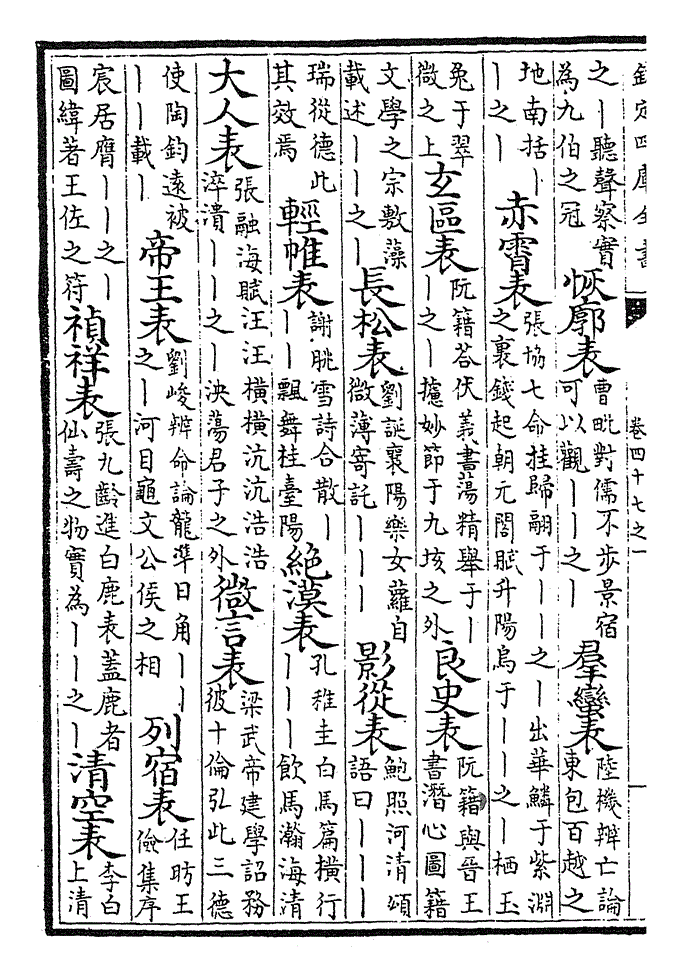 欽定四庫全書 卷四十七之一 一
之丨聽聲察實為九伯之冠 恢廓表 曹毗對儒不步景宿可以觀丨丨之丨 羣蠻表 陸機辯亡論東包百越之
地南括丨丨之丨 赤霄表 張協七命挂歸翮于丨丨之丨出華鱗于紫淵之裏錢起朝元閣賦升陽烏于丨丨之丨栖玉
兔于翠微之上 玄區表 阮籍荅伏義書蕩精舉于丨丨之丨攄妙節于九垓之外 良史表 阮籍與晉王書潛心圖籍
文學之宗敷藻載述丨丨之丨 長松表 劉誕襄陽樂女蘿自微薄寄託丨丨丨 影從表 鮑照河清頌語曰丨丨丨丨
瑞從德此其效焉 輕帷表 謝朓雪詩合散丨丨丨飄舞桂臺陽 絕漠表 孔稚圭白馬篇橫行丨丨丨飲馬瀚海清
大人表 張融海賦汪汪橫橫沆沆浩浩淬潰丨丨之丨泱蕩君子之外 微言表 梁武帝建學詔務彼十倫弘此三德
使陶鈞遠被丨丨載丨 帝王表 劉峻辨命論龍準日角丨丨之丨河目龜文公侯之相 列宿表 任昉王儉集序
宸居膺丨丨之丨圖緯著王佐之符 禎祥表 張九齡進白鹿表蓋鹿者仙壽之物實為丨丨之丨 清空表 李白上清